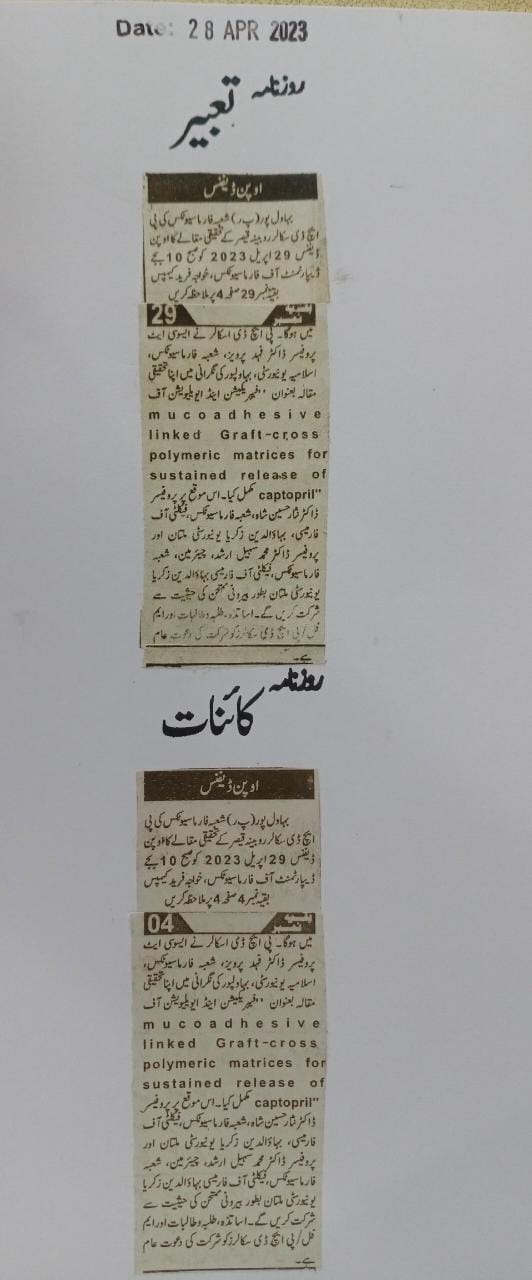 Date: 28 APR 2023
روزنامہ تعبیر
اوپن ڈیفنس
بہاول پور (پ ر) شعبہ فارماسیوٹکس کی پی
ایچ ڈی سکالر روبینہ قیصر کے تحقیقی مقالے کا اوپن
ڈیفنس 29 اپریل 2023 کو صبح 10 بجے
ڈیپارٹمنٹ آف فارماسیوٹکس، خواجہ فرید کیمپس
بقیہ نمبر 29 صفحہ 4 پر ملاحظہ کریں
بقیہ نمبر 29
میں ہوگا۔ پی ایچ ڈی اسکالر نے ایسوسی ایٹ
پروفیسر ڈاکٹر فہد پرویز، شعبہ فارماسیوٹکس،
اسلامیہ یونیورسٹی، بہاولپور کی نگرانی میں اپنا تحقیقی
مقالہ بعنوان "فیبریکیشن اینڈ ایویلیویشن آف
mucoadhesive
linked Graft-cross
polymeric matrices for
sustained release of
captopril" مکمل کیا۔ اس موقع پر پروفیسر
ڈاکٹر نثار حسین شاہ، شعبہ فارماسیوٹکس، فیکلٹی آف
فارمیسی، بہاؤالدین زکریا یونیورسٹی ملتان اور
پروفیسر ڈاکٹر محمد سہیل ارشد، چیئرمین، شعبہ
فارماسیوٹکس، فیکلٹی آف فارمیسی بہاؤالدین زکریا
یونیورسٹی ملتان بطور بیرونی ممتحن کی حیثیت سے
شرکت کریں گے۔ اساتذہ، طلبہ و طالبات اور ایم
فل/ پی ایچ ڈی سکالرز کو شرکت کی دعوت عام
ہے۔
روزنامہ کائنات
اوپن ڈیفنس
بہاول پور (پ ر) شعبہ فارماسیوٹکس کی پی
ایچ ڈی سکالر روبینہ قیصر کے تحقیقی مقالے کا اوپن
ڈیفنس 29 اپریل 2023 کو صبح 10 بجے
ڈیپارٹمنٹ آف فارماسیوٹکس، خواجہ فرید کیمپس
بقیہ نمبر 4 صفحہ 4 پر ملاحظہ کریں
بقیہ نمبر 04
میں ہوگا۔ پی ایچ ڈی اسکالر نے ایسوسی ایٹ
پروفیسر ڈاکٹر فہد پرویز، شعبہ فارماسیوٹکس،
اسلامیہ یونیورسٹی، بہاولپور کی نگرانی میں اپنا تحقیقی
مقالہ بعنوان "فیبریکیشن اینڈ ایویلیویشن آف
mucoadhesive
linked Graft-cross
polymeric matrices for
sustained release of
captopril" مکمل کیا۔ اس موقع پر پروفیسر
ڈاکٹر نثار حسین شاہ، شعبہ فارماسیوٹکس، فیکلٹی آف
فارمیسی، بہاؤالدین زکریا یونیورسٹی ملتان اور
پروفیسر ڈاکٹر محمد سہیل ارشد، چیئرمین، شعبہ
فارماسیوٹکس، فیکلٹی آف فارمیسی بہاؤالدین زکریا
یونیورسٹی ملتان بطور بیرونی ممتحن کی حیثیت سے
شرکت کریں گے۔ اساتذہ، طلبہ و طالبات اور ایم
فل/ پی ایچ ڈی سکالرز کو شرکت کی دعوت عام
ہے۔